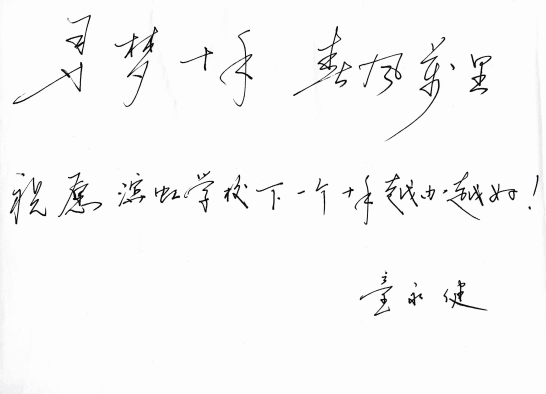 寻梦十年 春风万里
祝愿滨虹学校下一个十年越办越好！
童永健